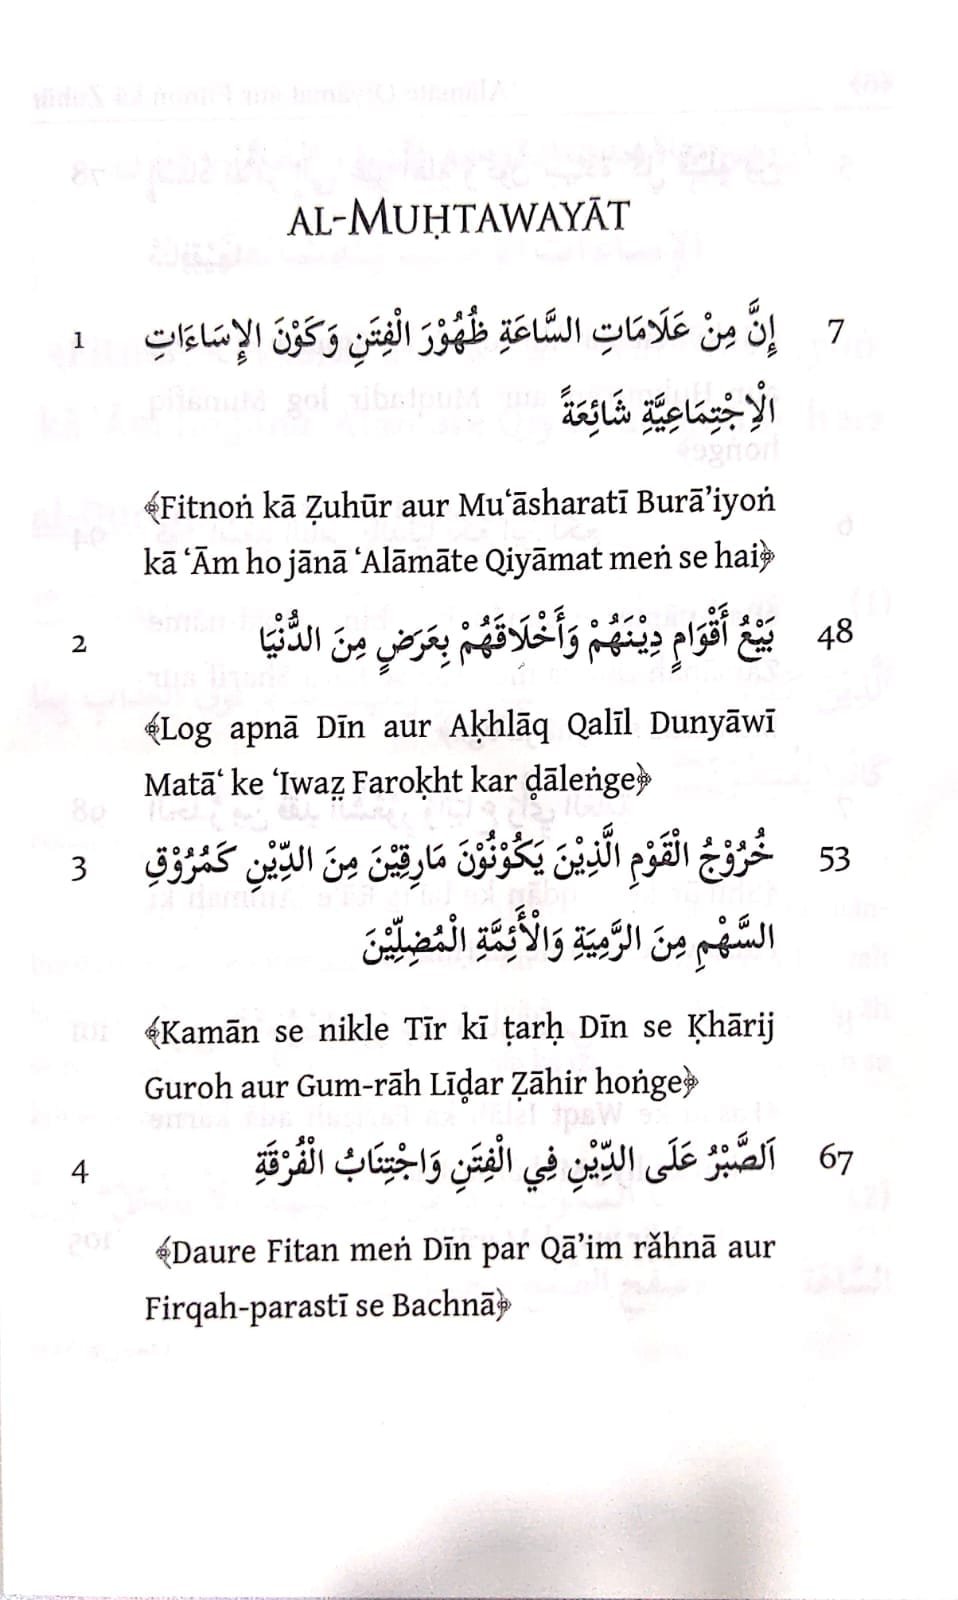 AL-MUḤTAWAYĀT
1 إِنَّ مِنْ عَلَامَاتِ السَّاعَةِ ظُهُوْرَ الْفِتَنِ وَكَوْنَ الإِسَاءَاتِ 7
الْاِجْتِمَاعِيَّةِ شَائِعَةً
﴿Fitnoṅ kā Ẓuhūr aur Mu‘āsharatī Burā’iyoṅ
kā ‘Ām ho jānā ‘Alāmāte Qiyāmat meṅ se hai﴾
2 بَيْعُ أَقْوَامٍ دِيْنَهُمْ وَأَخْلَاقَهُمْ بِعَرَضٍ مِنَ الدُّنْيَا 48
﴿Log apnā Dīn aur Aḳhlāq Qalīl Dunyāwī
Matā‘ ke ‘Iwaẓ̤ Faroḳht kar ḍāleṅge﴾
3 خُرُوْجُ الْقَوْمِ الَّذِيْنَ يَكُوْنُوْنَ مَارِقِيْنَ مِنَ الدِّيْنِ كَمُرُوْقِ 53
السَّهْمِ مِنَ الرَّمِيَةِ وَالْأَئِمَّةِ الْمُضِلِّيْنَ
﴿Kamān se nikle Tīr kī ṭarḥ Dīn se Ḳhārij
Guroh aur Gum-rāh Līḍar Ẓāhir hoṅge﴾
4 اَلصَّبْرُ عَلَى الدِّيْنِ فِي الْفِتَنِ وَاجْتِنَابُ الْفُرْقَةِ 67
﴿Daure Fitan meṅ Dīn par Qā’im rǎhnā aur
Firqah-parastī se Bachnā﴾